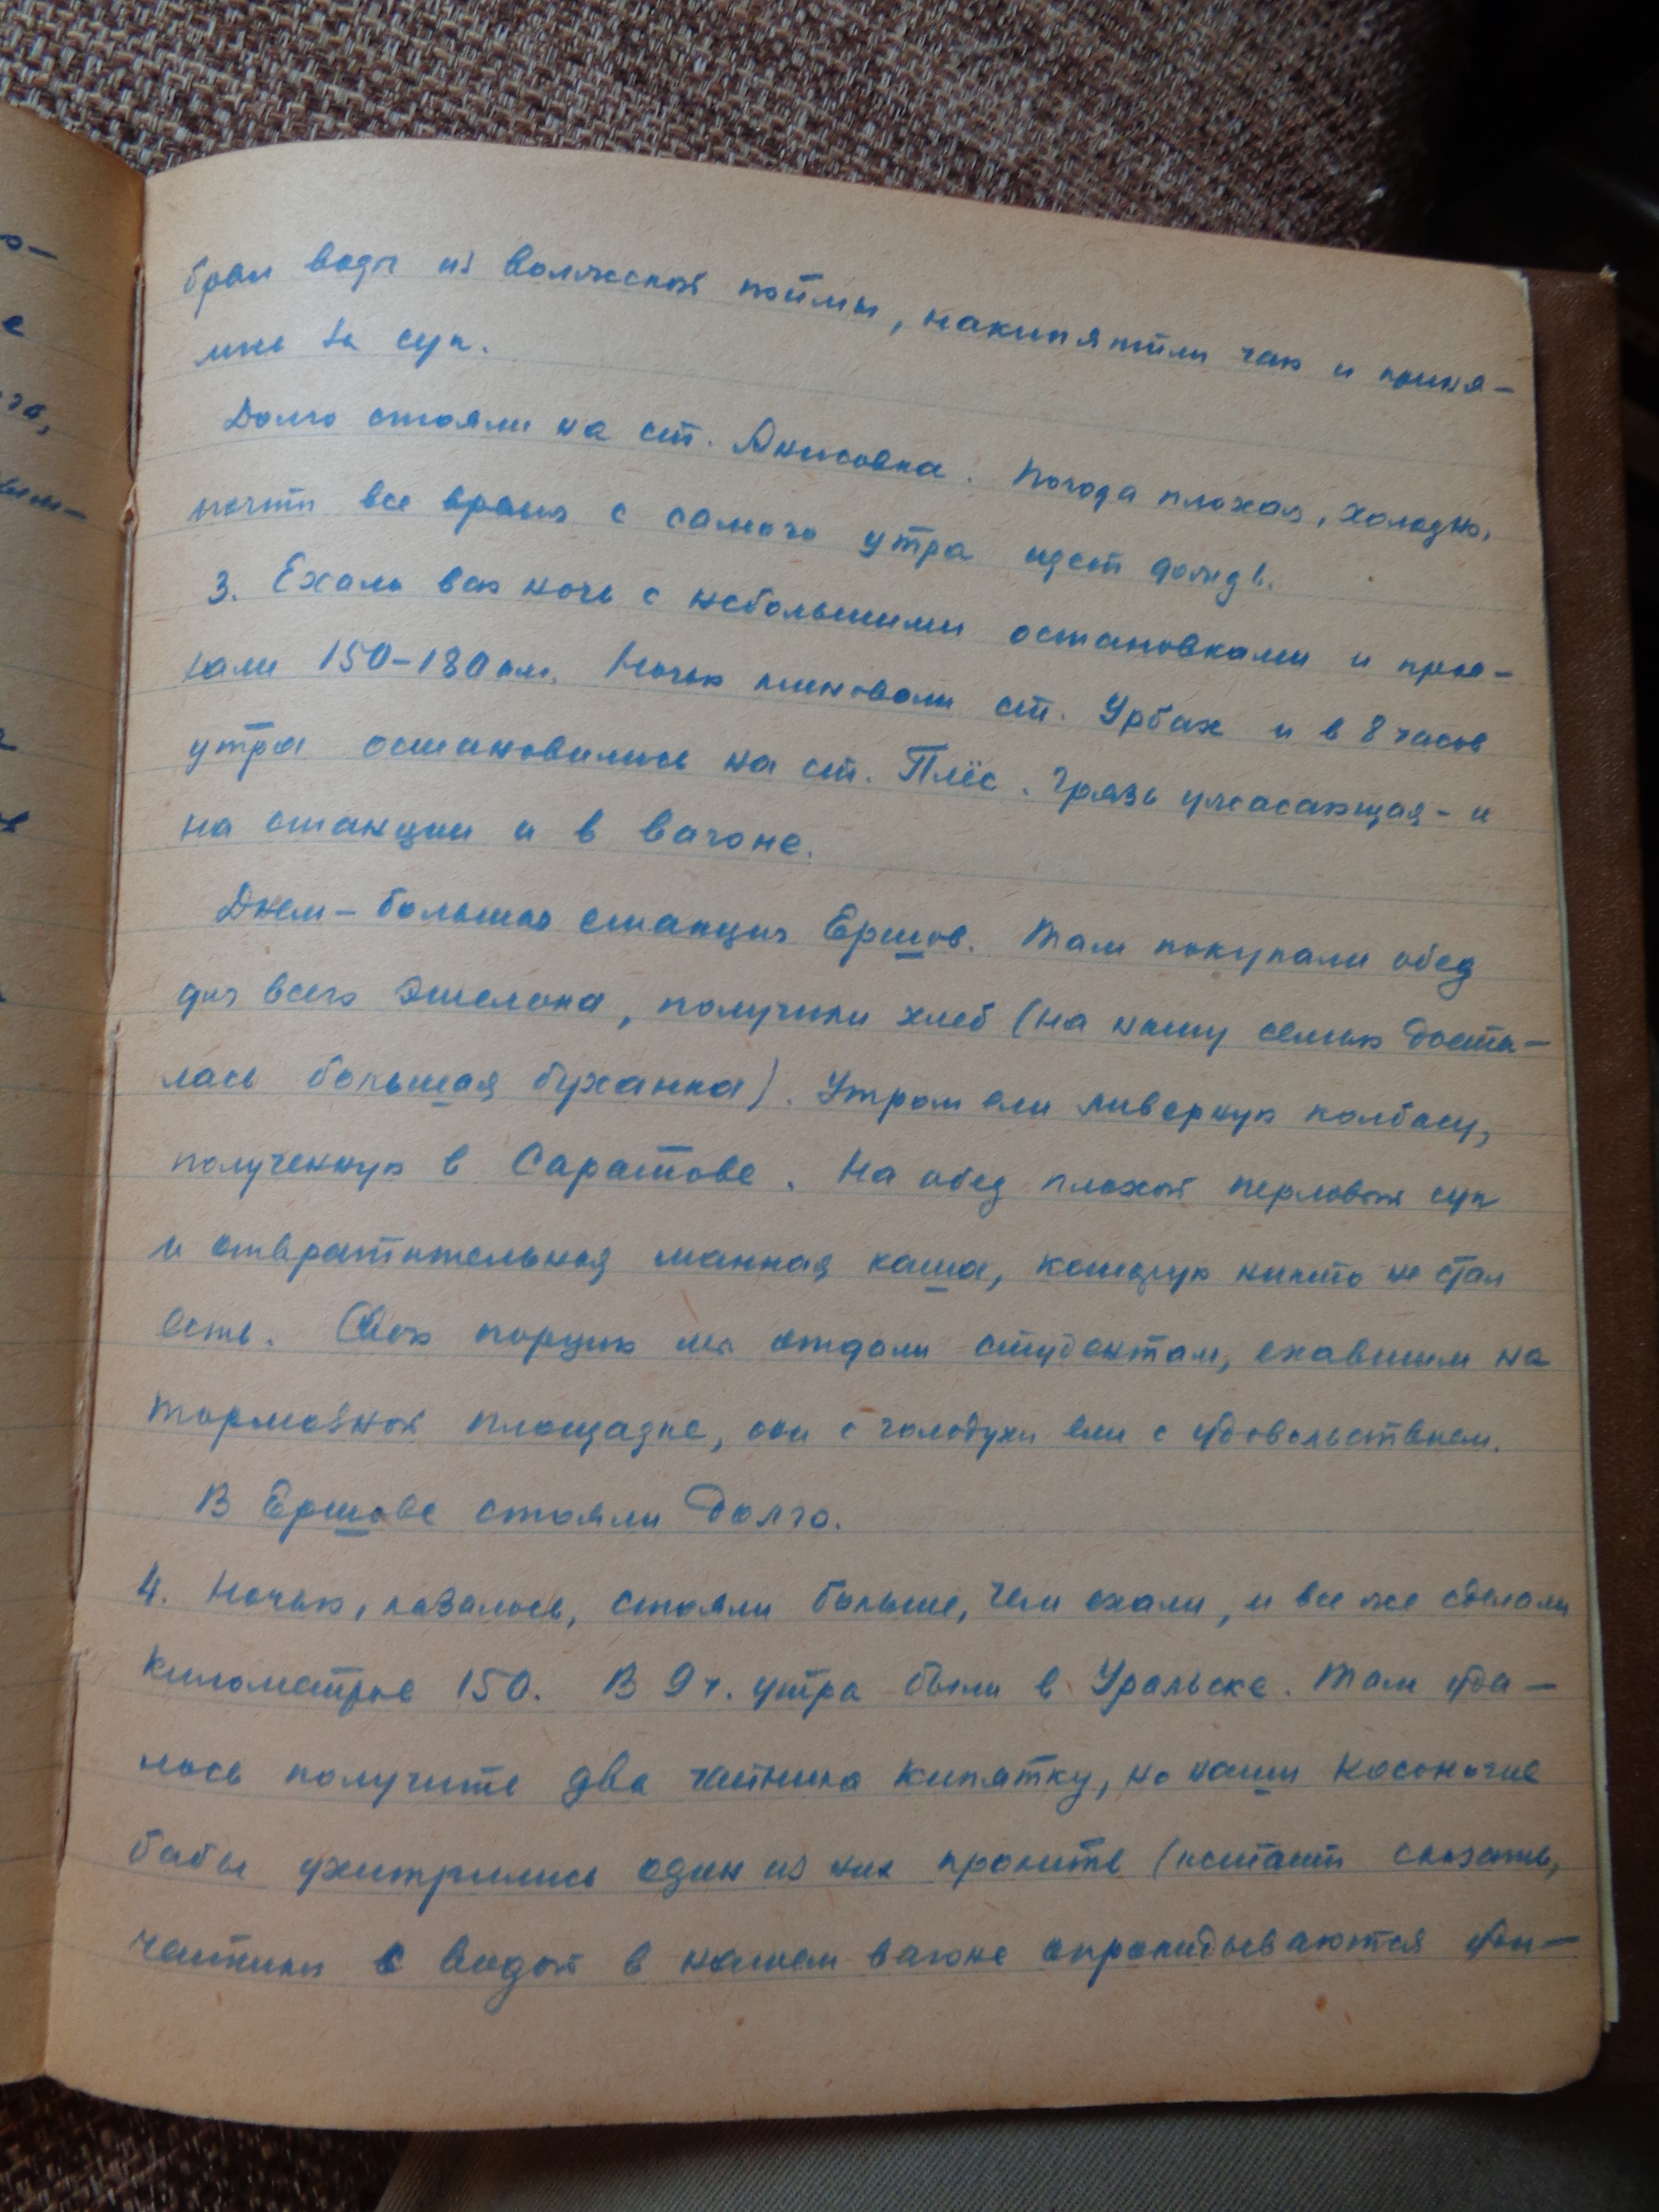 брали воды из волжской поймы, накипятили чаю и приня-
лись за суп.
Долго стояли на ст. Анисовка. Погода плохая, холодно,
почти все время с самого утра идет дождь.
3. Ехали всю ночь с небольшими остановками и прое-
хали 150-180 км. Ночью миновали ст. Урбах и в 8 часов
утра остановились на ст. Плёс. Грязь ужасающая - и
на станции и в вагоне.
Днем - большая станция Ершов. Там покупали обед
для всего эшелона, получили хлеб (на нашу семью доста-
лась большая буханка). Утром ели ливерную колбасу,
полученную в Саратове. На обед плохой перловый суп
и отвратительная манная каша, которую никто не стал
есть. Свою порцию мы отдали студентам, ехавшим на
тормозной площадке, они с голодухи ели с удовольствием.
В Ершове стояли долго.
4. Ночью, казалось, стояли больше, чем ехали, и все же сделали
километров 150. В 9 ч. утра были в Уральске. Там уда-
лось получить два чайника кипятку, но наши косоногие
бабы ухитрились один из них пролить (кстати сказать,
чайники с водой в нашем вагоне опрокидываются